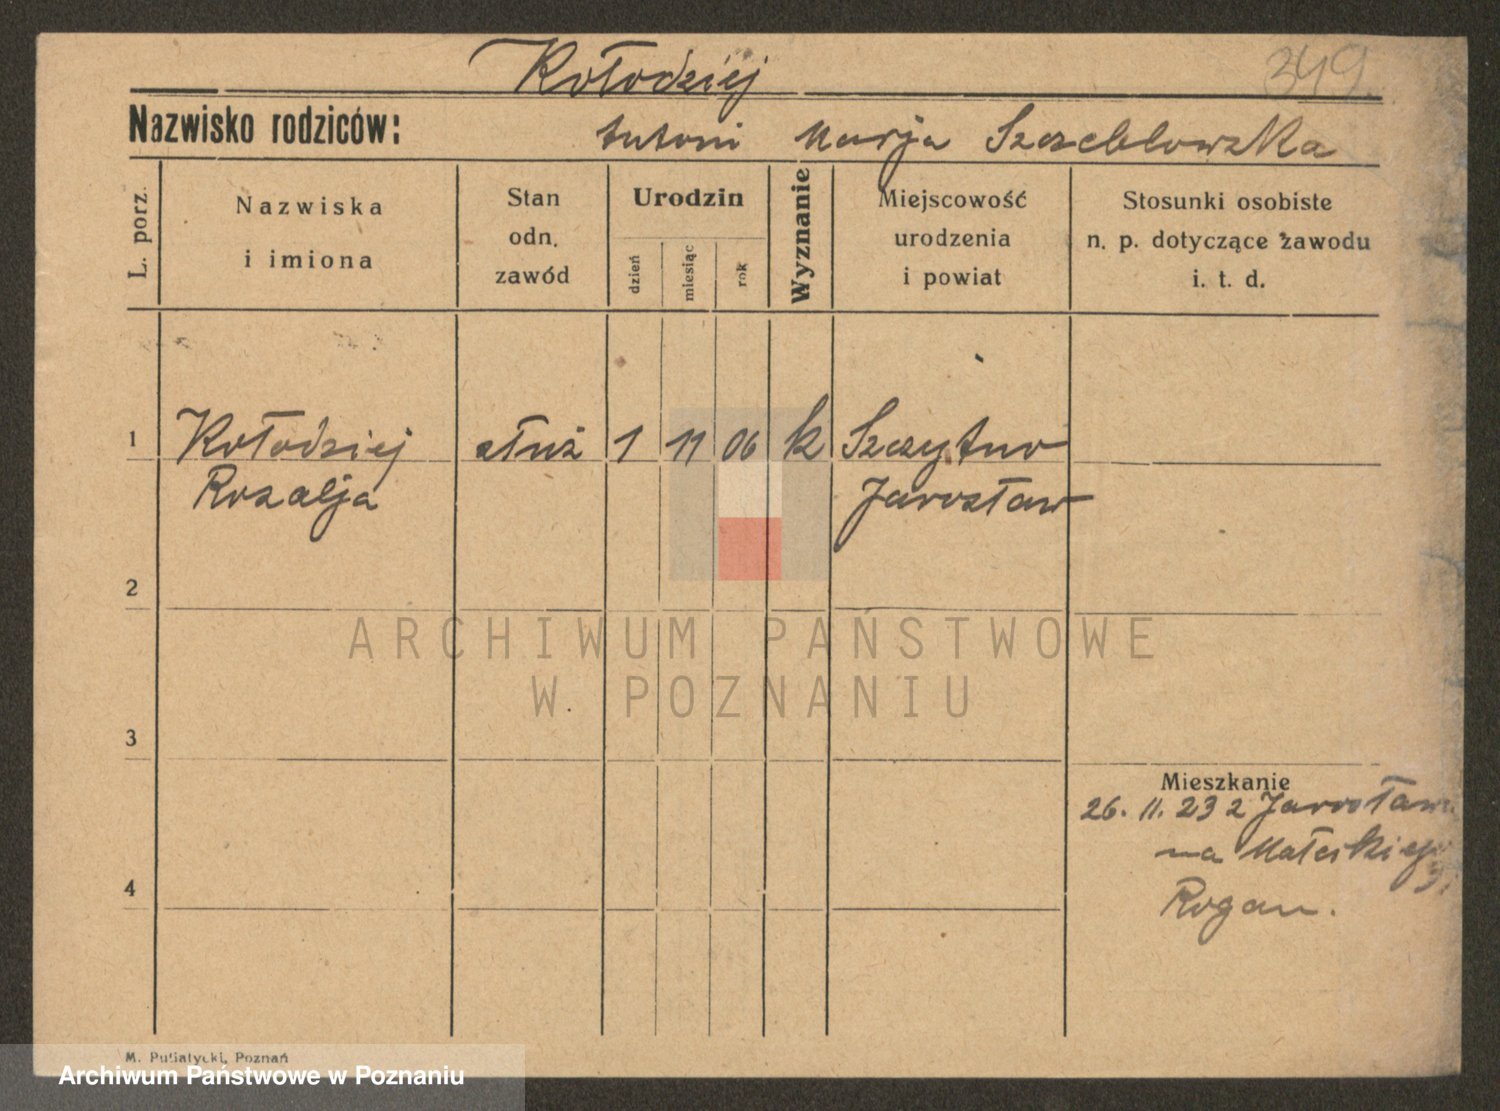 Kołodziej
349
Nazwisko rodziców: Antoni Marja
L. porz.
Nazwiska
i imiona
Stan
odn.
zawód
Urodzin
dzień
miesiąc
rok
Wyznanie
Miejscowość
urodzenia
i powiat
Stosunki osobiste
n. p. dotyczące zawodu
i. t. d.
1 Kołodziej służ 1 11 06 k Szczytno
Rozalja Jarosław
2
ARCHIWUM PAŃSTWOWE
W POZNANIU
3
Mieszkanie
26. 11. 23 z Jarosławia
na
4
Rogan.
M. Putiatycki, Poznań
Archiwum Państwowe w Poznaniu